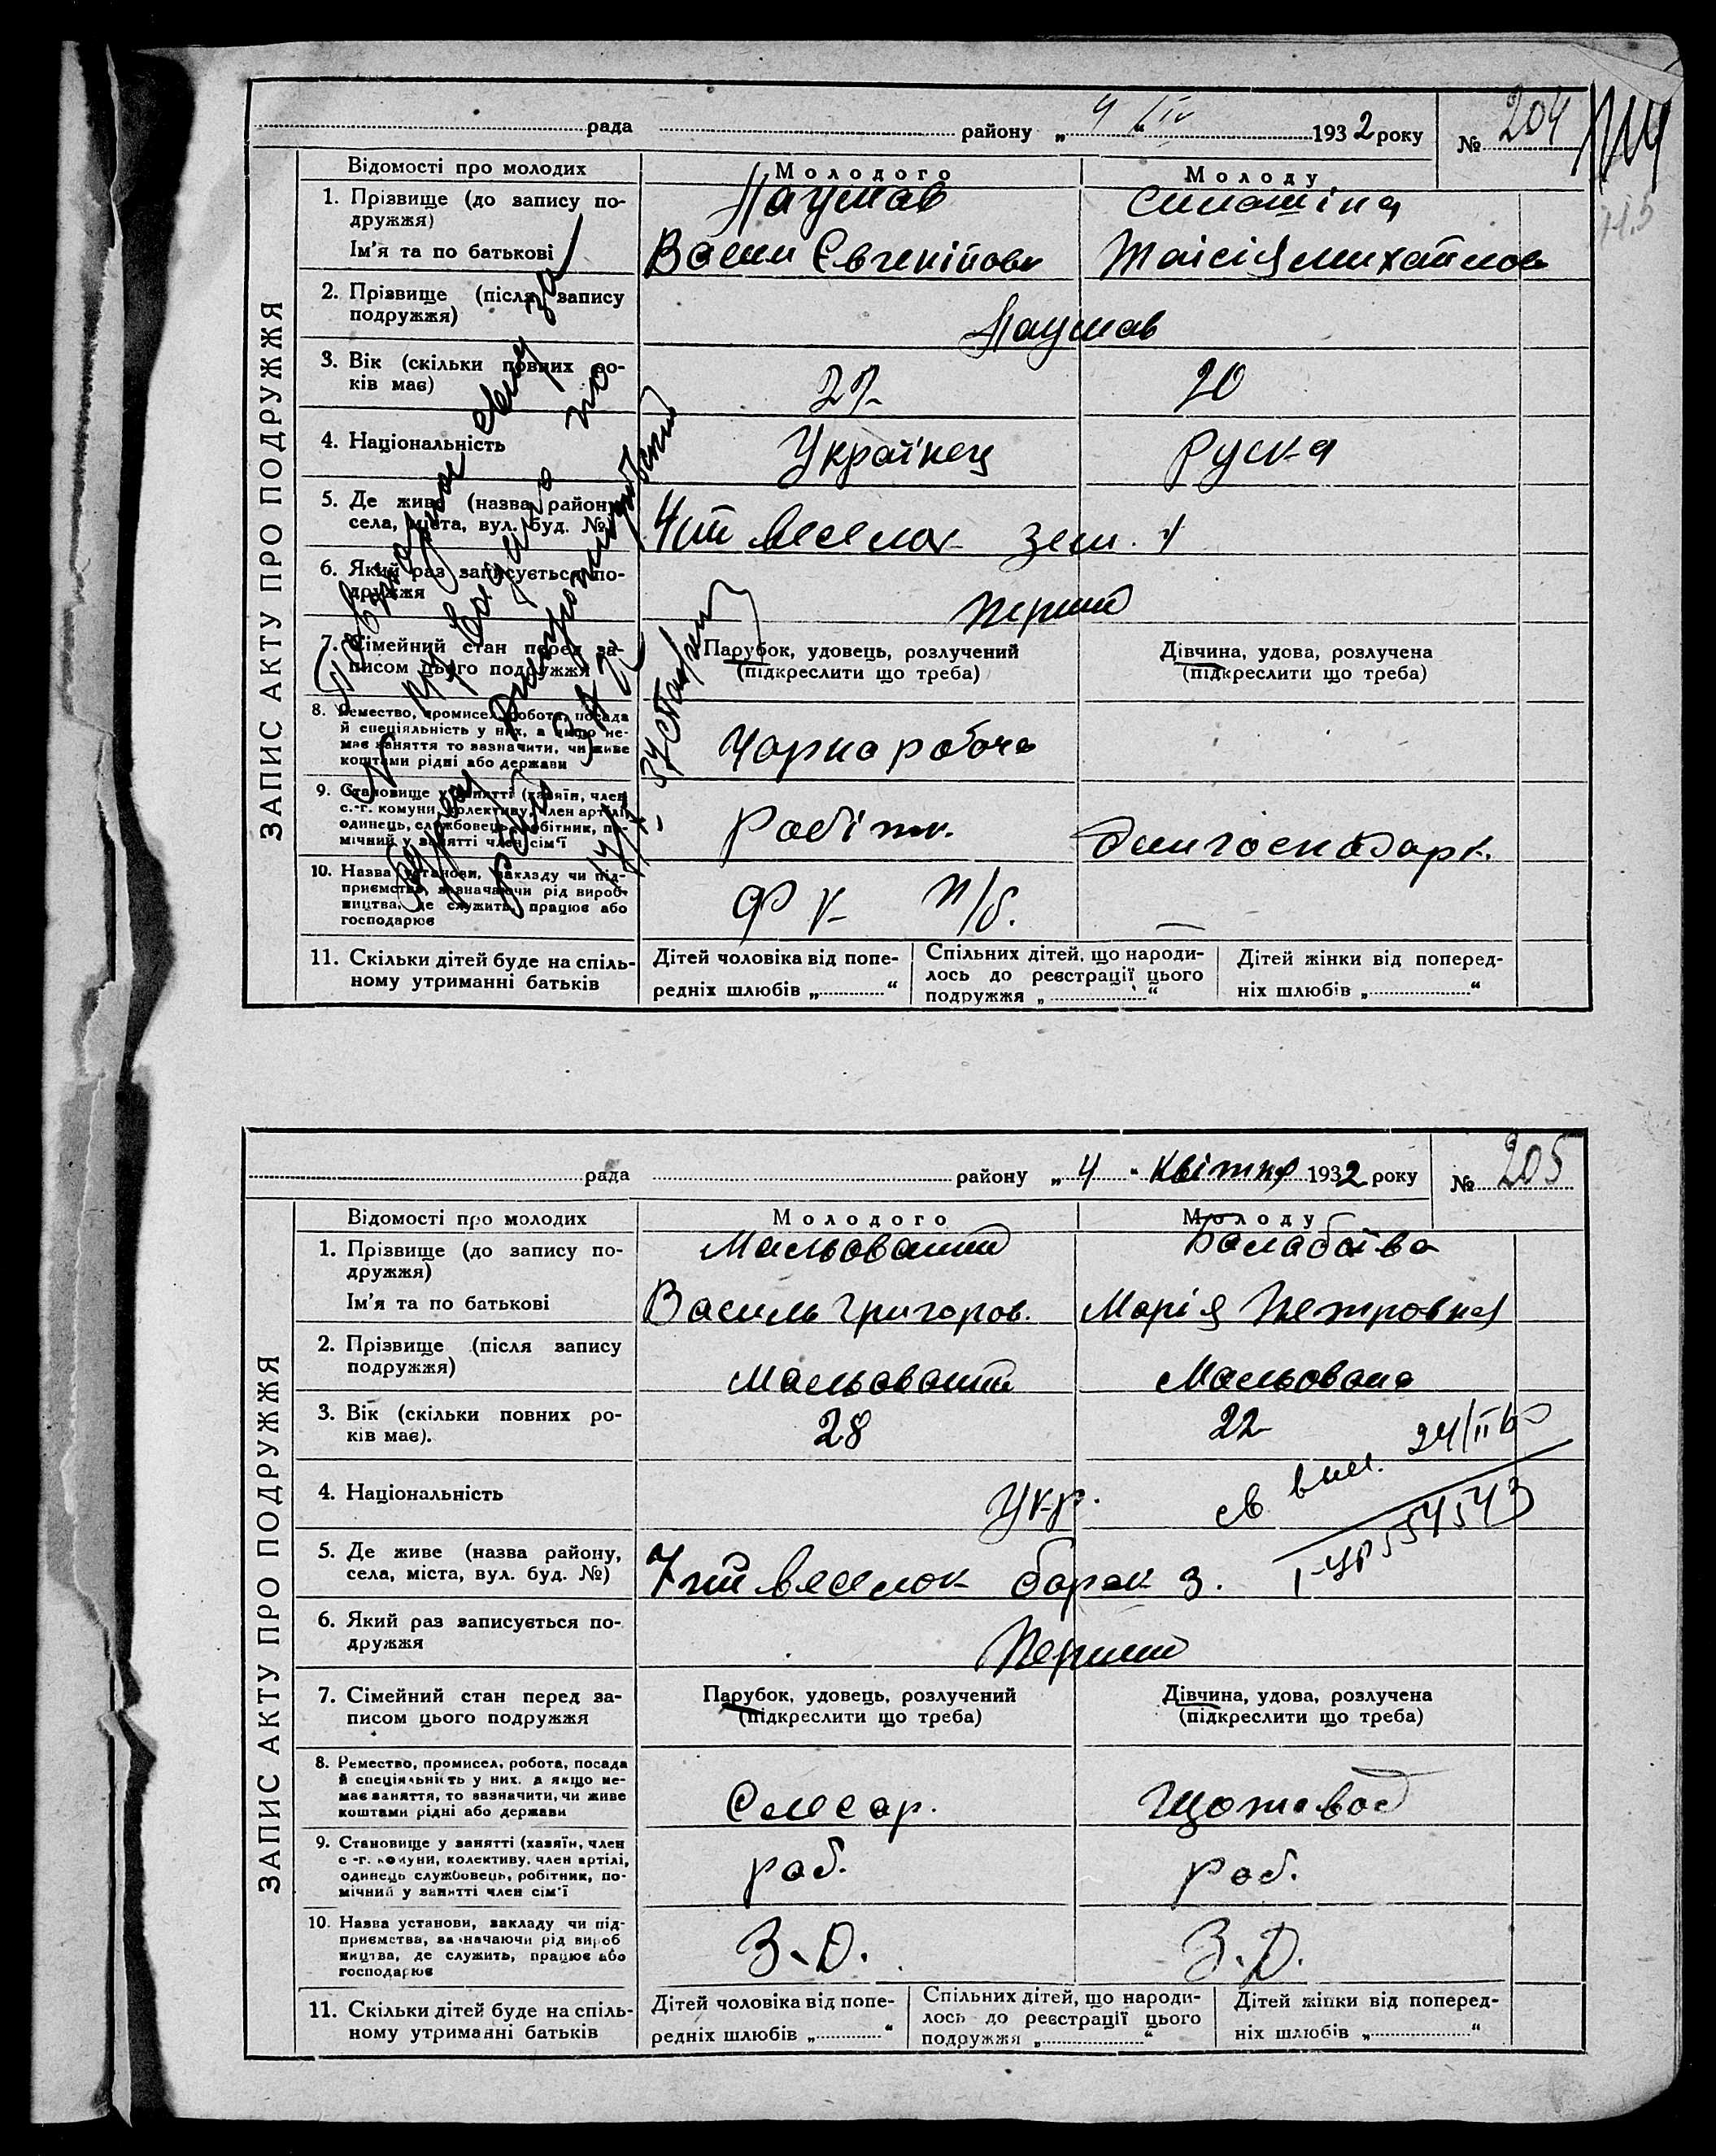 рада району „ 4 “ IV 1932 року № 204
ЗАПИС АКТУ ПРО ПОДРУЖЖЯ
Відомості про молодих Молодого Молоду
1. Прізвище (до запису по-
дружжя) Наумов
Ім'я та по батькові
2. Прізвище (після запису
подружжя) Наумов
3. Вік (скільки повних ро-
ків має) 27 20
4. Національність Українец Руска
5. Де живе (назва району,
села, міста, вул. буд. №)
6. Який раз записується по-
дружжя перший
7. Сімейний стан перед за-
писом цього подружжя
Парубок, удовець, розлучений
(підкреслити що треба)
Дівчина, удова, розлучена
(підкреслити що треба)
8. Ремество, промисел, робота, посада
й спеціяльність у них, а якщо не-
має заняття то зазначити, чи живе
коштами рідні або держави
Чорнороб
9. Становище у занятті (хазяїн, член
с.-г. комуни, колективу, член артілі,
одинець, службовець, робітник, по-
мічний у занятті член сім'ї
робітн. домгосподарк.
10. Назва установи, закладу чи під-
приємства, зазначаючи рід вироб-
ництва, де служить, працює або
господарює
11. Скільки дітей буде на спіль-
ному утриманні батьків
Дітей чоловіка від попе-
редніх шлюбів „ “
Спільних дітей, що народи-
лось до реєстрації цього
подружжя „ “
Дітей жінки від поперед-
ніх шлюбів „ “
рада району „ 4 “ квітня 1932 року № 205
ЗАПИС АКТУ ПРО ПОДРУЖЖЯ
Відомості про молодих Молодого Молоду
1. Прізвище (до запису по-
дружжя) Мальований
Ім'я та по батькові Василь Григоров. Марія Петровна
2. Прізвище (після запису
подружжя) Мальований Мальована
3. Вік (скільки повних ро-
ків має). 28 22
4. Національність Укр.
5. Де живе (назва району,
села, міста, вул. буд. №) барак 3.
6. Який раз записується по-
дружжя Перший
7. Сімейний стан перед за-
писом цього подружжя
Парубок, удовець, розлучений
(підкреслити що треба)
Дівчина, удова, розлучена
(підкреслити що треба)
8. Ремество, промисел, робота, посада
й спеціяльність у них, а якщо не-
має заняття, то зазначити, чи живе
коштами рідні або держави
Слесар. Щотовод
9. Становище у занятті (хазяїн, член
с.-г. комуни, колективу, член артілі,
одинець службовець, робітник, по-
мічний у занятті член сім'ї
роб. роб.
10. Назва установи, закладу чи під-
приємства, зазначаючи рід вироб
ництва, де служить, працює або
господарює
З.Д. З.Д.
11. Скільки дітей буде на спіль-
ному утриманні батьків
Дітей чоловіка від попе-
редніх шлюбів „ “
Спільних дітей, що народи-
лось до реєстрації цього
подружжя „ “
Дітей жінки від поперед-
ніх шлюбів „ “